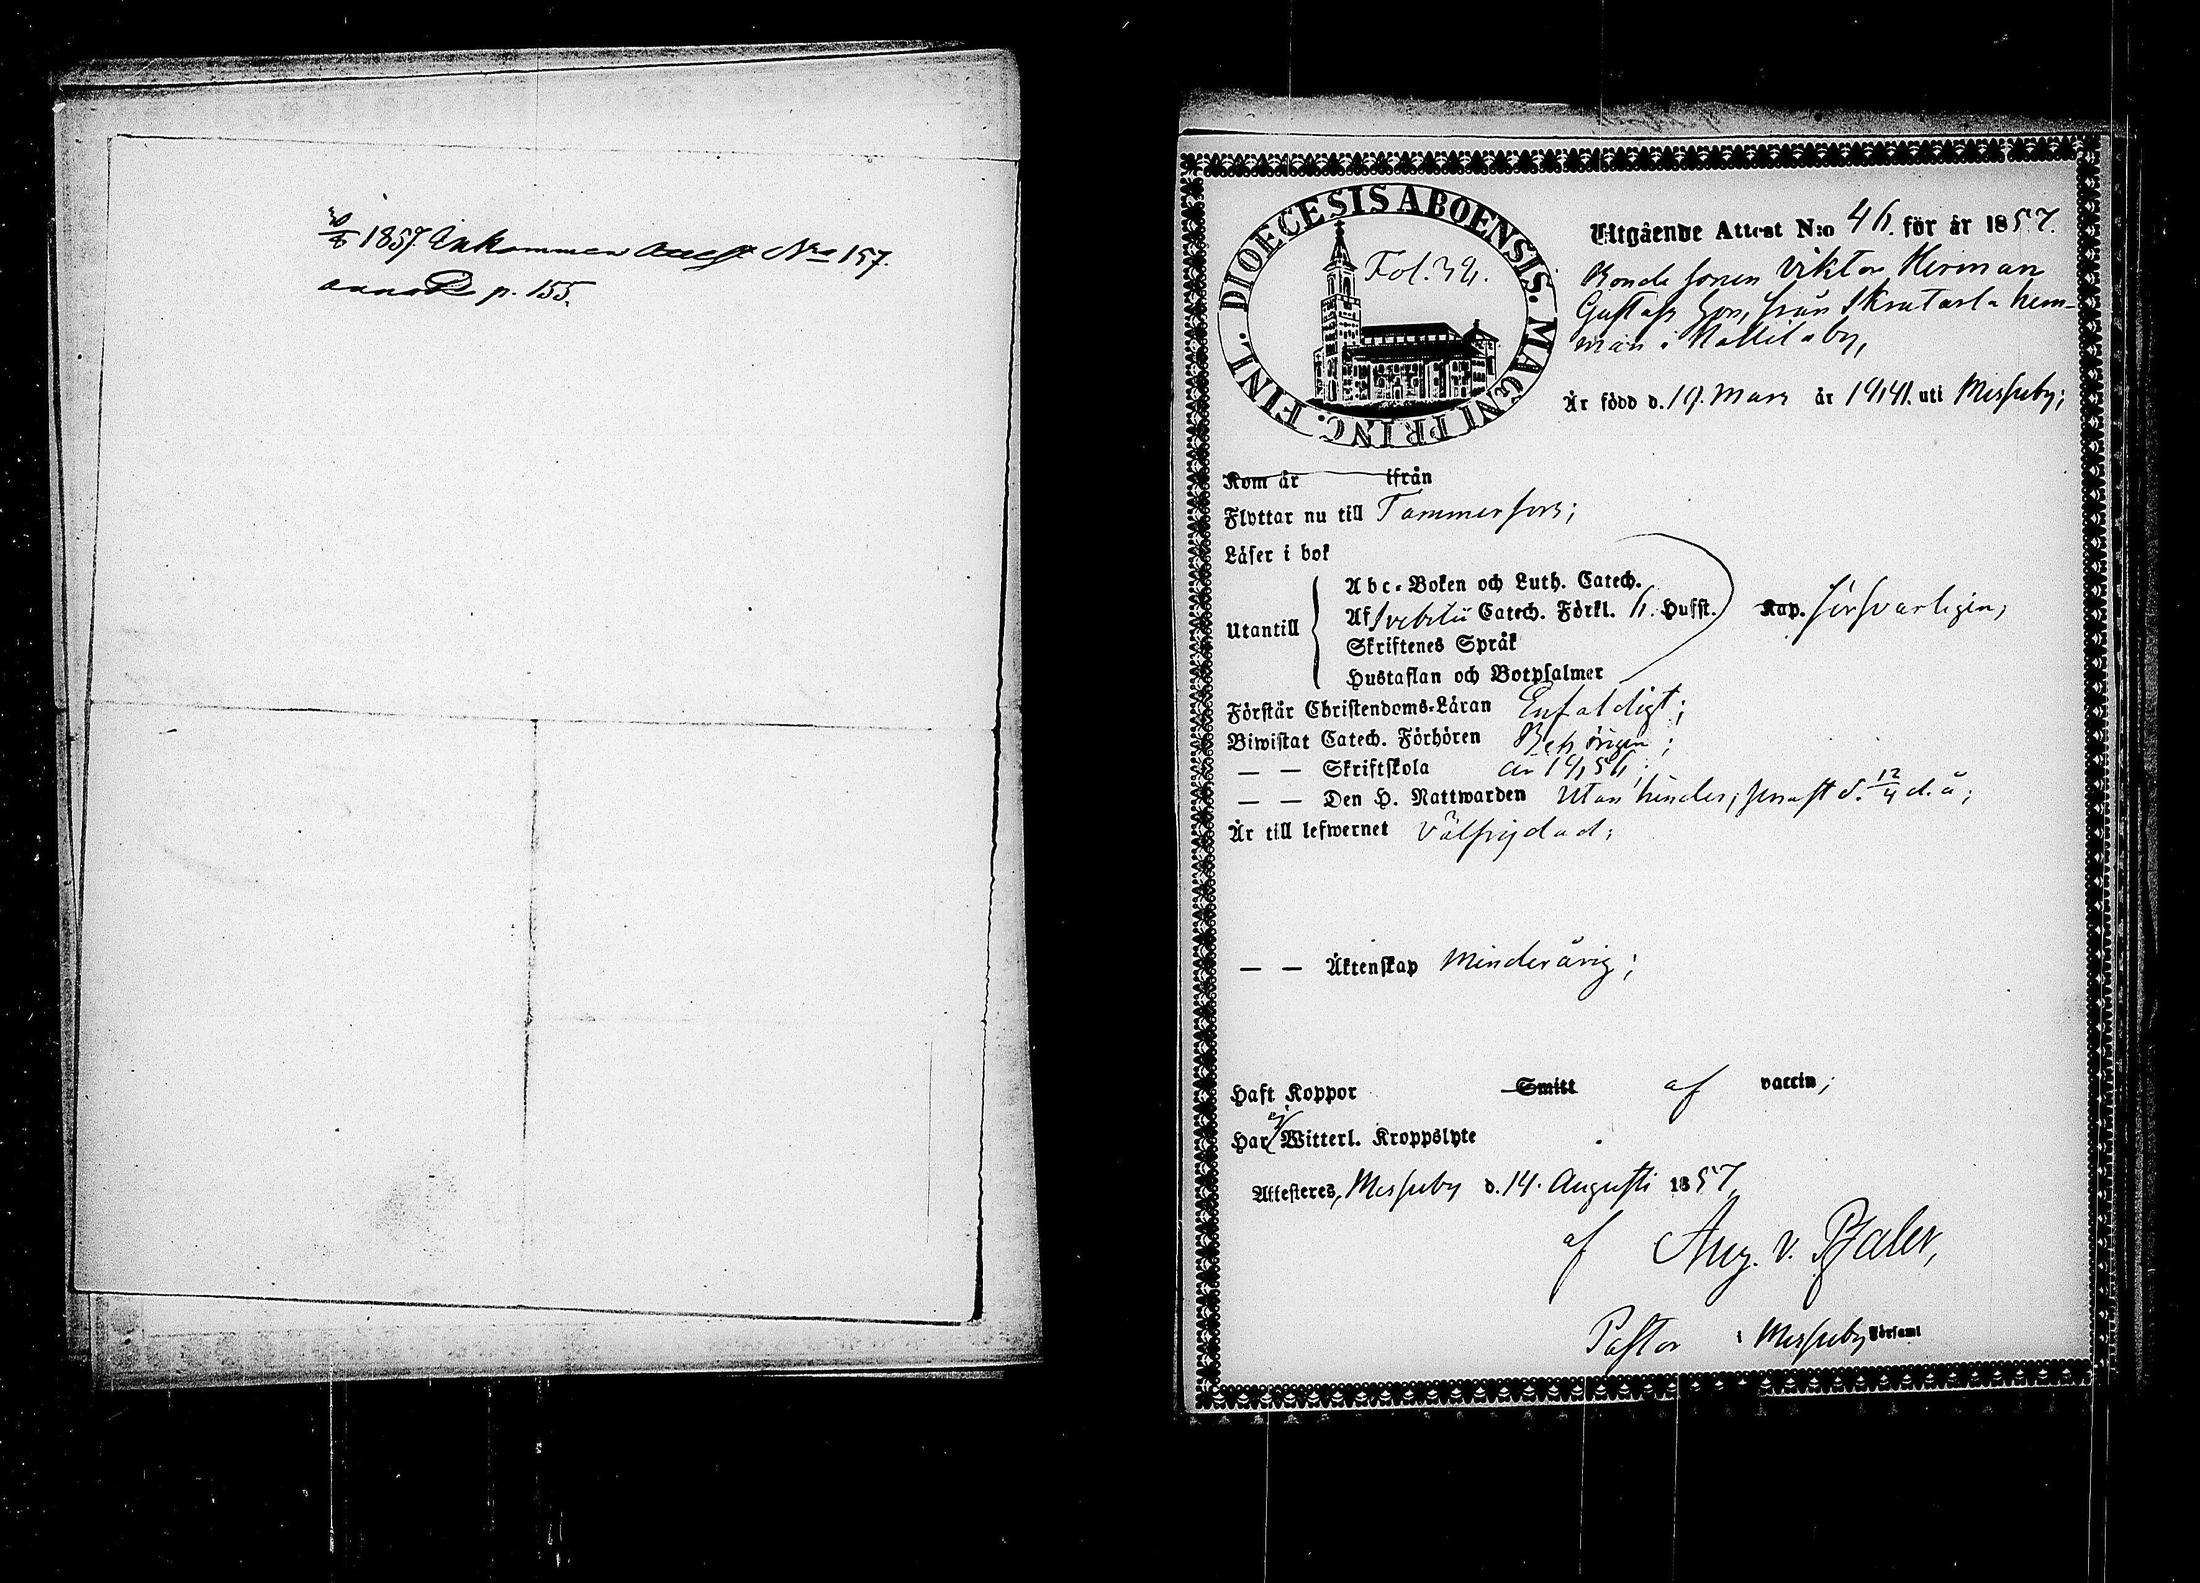 1857. Inkommen Attest No 157.
p. 155.
DIOECESIS ABOENSIS. MAGNI PRINC. FINL.
Fol. 34.
Utgående Attest N:o 46. för år 1857.
Bonde sonen Viktor Herman
Gustafs son, från Skratarla hem-
man i Mattila by,
Är född d. 19. Mars år 1841. uti Messuby;
Kom år ifrån
Flyttar nu till Tammerfors;
Läser i bok
Abc-Boken och Luth. Catech.
Utantill Af Svebilii Catech. Förkl. 6. Hufst. Kap. försvarligen,
Skriftenes Språk
Hustaflan och Botpsalmer
Förstår Christendoms-Läran Enfaldigt;
Biwistat Catech. Förhören Behörigen;
— — Skriftskola år 1856;
— — Den H. Nattwarden Utan hinder, senast d. 12/4 d. å;
Är till lefwernet Välfrejdad;
— — Äktenskap Minderårig;
Haft Koppor Smitt af vaccin;
Har ej Witterl. Kroppslyte
Attesteres, Messuby d. 14. Augusti 1857
af Aug. v. Pfaler,
Pastor i Messuby Församl